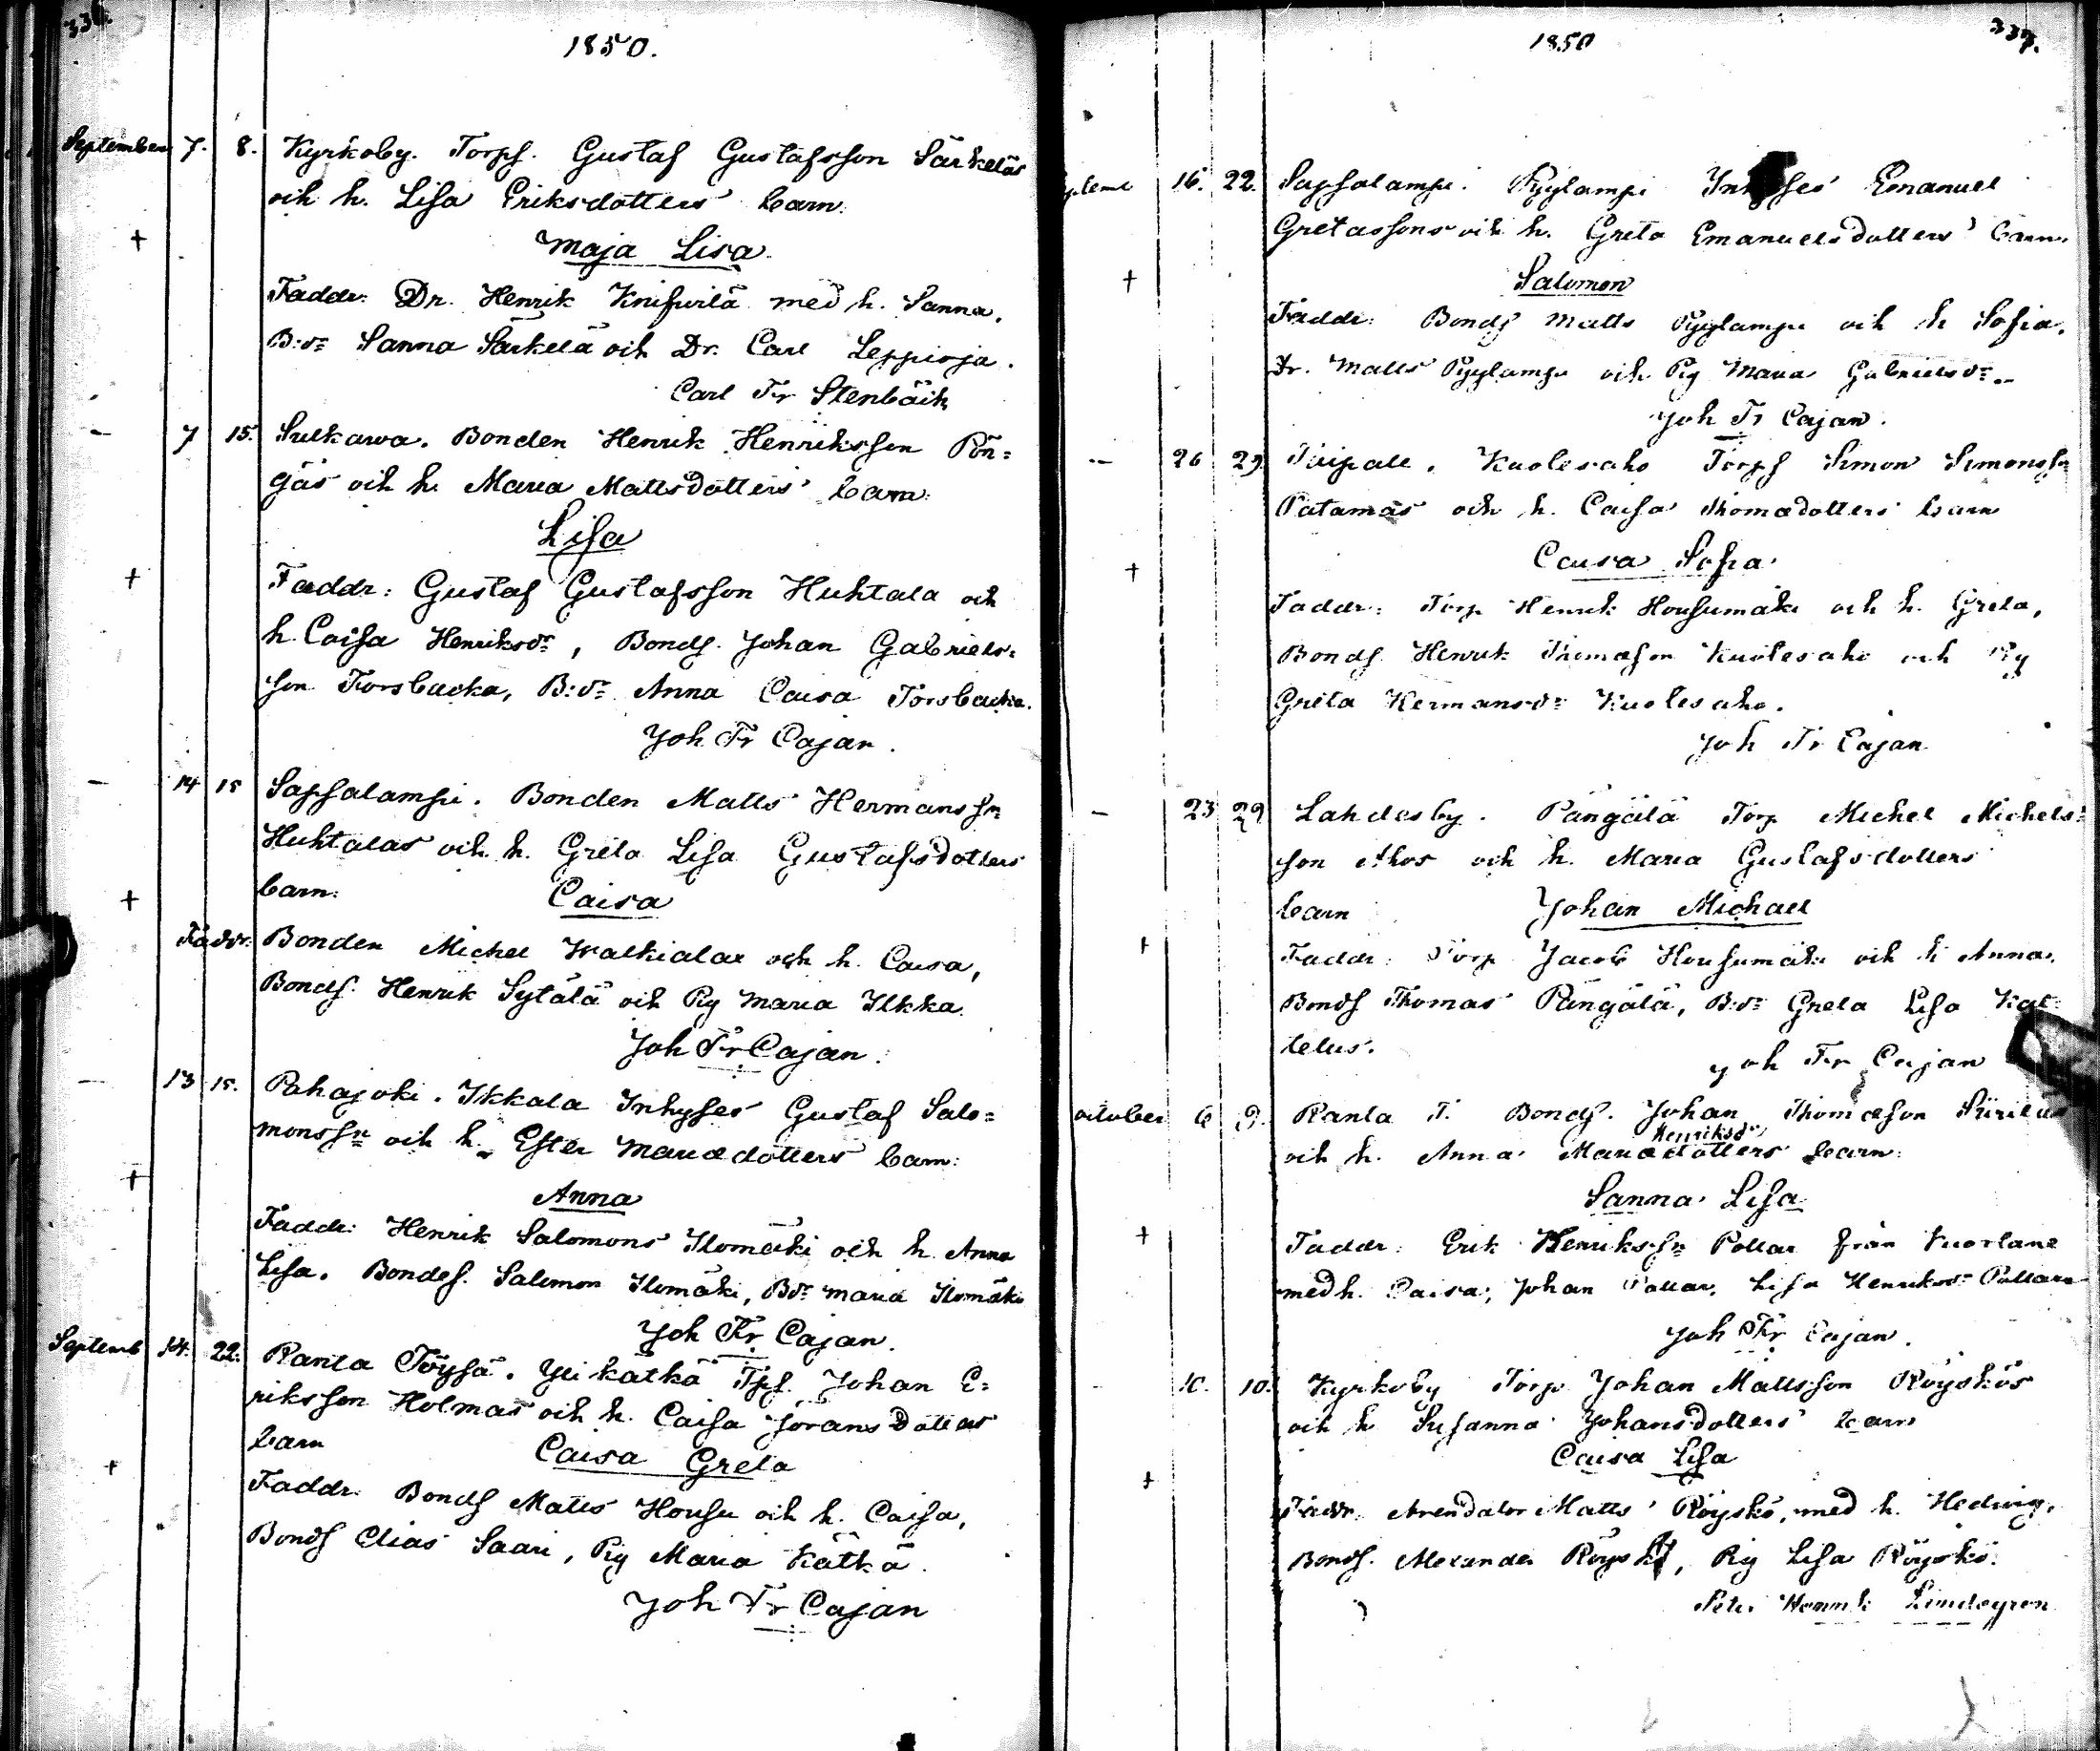 336.
1850.
September 7. 8. Kyrkoby. Torpf. Gustaf Gustafsson Särkeläs
och h. Lisa Eriksdotters barn:
+ Maja Lisa
Faddr: Dr. Henrik Knifvilä med h. Sanna.
B:dr Sanna Särkelä och Dr. Carl Leppioja.
Carl Fr Stenbäck
— 7 15. Sulkawa. Bonden Henrik Henriksson Pön=
gäs och h. Maria Mattsdotters barn:
Lisa
+ Faddr: Gustaf Gustafsson Huhtala och
h. Caisa Henriksdr, Bondf. Johan Gabriels=
son Forsbacka, B:dr Anna Caisa Forsbacka.
Joh Fr Cajan.
— 14 15 Sapsalampi. Bonden Matts Hermanssn
Huhtalas och h. Greta Lisa Gustafsdotters
+ barn: Caisa
Faddr. Bonden Michel Walkialax och h. Caisa,
Bondf. Henrik Sytälä och Pig Maria Ilkka.
Joh Fr Cajan.
— 13 15. Pahajoki. Ikkala Inhyses Gustaf Salo=
monssn och h. Ester Mariædotters barn:
+ Anna
Faddr: Henrik Salomons Ilomäki och h. Anna
Lisa. Bondef. Salomon Ilomäki, Bdr Maria Ilomäki
Joh Fr Cajan.
Septemb 14. 22. Ranta Töysä. Yli kätkä Tpf. Johan E=
riksson Holmas och h. Caisa Jöransdotters
barn Caisa Greta
+ Faddr. Bondf Matts Housu och h. Caisa,
Bondf Elias Saari, Pig Maria Kätkä.
Joh Fr Cajan
337.
1850
16. 22. Sapsalampi. Pyylampi Emanuel
Gretassons och h. Greta Emanuelsdotters barn.
+ Salomon
Faddr: Bondf Matts Pyylampi och h Sofia.
Dr. Matts Pyylampi och Pig Maria Gabrielsdr
Joh Fr Cajan.
— 26 29 Kuolesaho Torpf Simon Simonssn
Patamäs och h. Caisa Thomædotters barn
+ Caisa Sofia
Faddr: Torp Henrik Housumäki och h. Greta,
Bondf. Henrik Thomæson Kuolesaho och Pig
Greta Hermansdr Kuolesaho.
Joh Fr Cajan
— 23 29 Lahdesby. Pängälä Torp Michel Michels=
son Ahos och h. Maria Gustafsdotters
barn Johan Michael
+ Faddr: Torp Jacob Housumäki och h Anna.
Bondf Thomas Pängälä, B:dr Greta Lisa Kat=
telus.
Joh Fr Cajan
October 6 9. Ranta T. Bondf. Johan Thomæson
Henriksdr
och h. Anna Mariædotters barn:
Sanna Lisa
+ Faddr: Erik Henrikssn Pollar från Kuortane
med h. Caisa, Johan Pollar, Lisa Henriksdr Pollare
Joh Fr Cajan.
10. 10. Kyrkoby Torp Johan Mattsson Röyskös
och h Susanna Johansdotters barn
Caisa Lisa
+ Faddr. Arendator Matts Röyskö, med h. Hedvig.
Bondf. Alexander Röyskö, Pig Lisa Röyskö.
Petr Henrik Lindegren